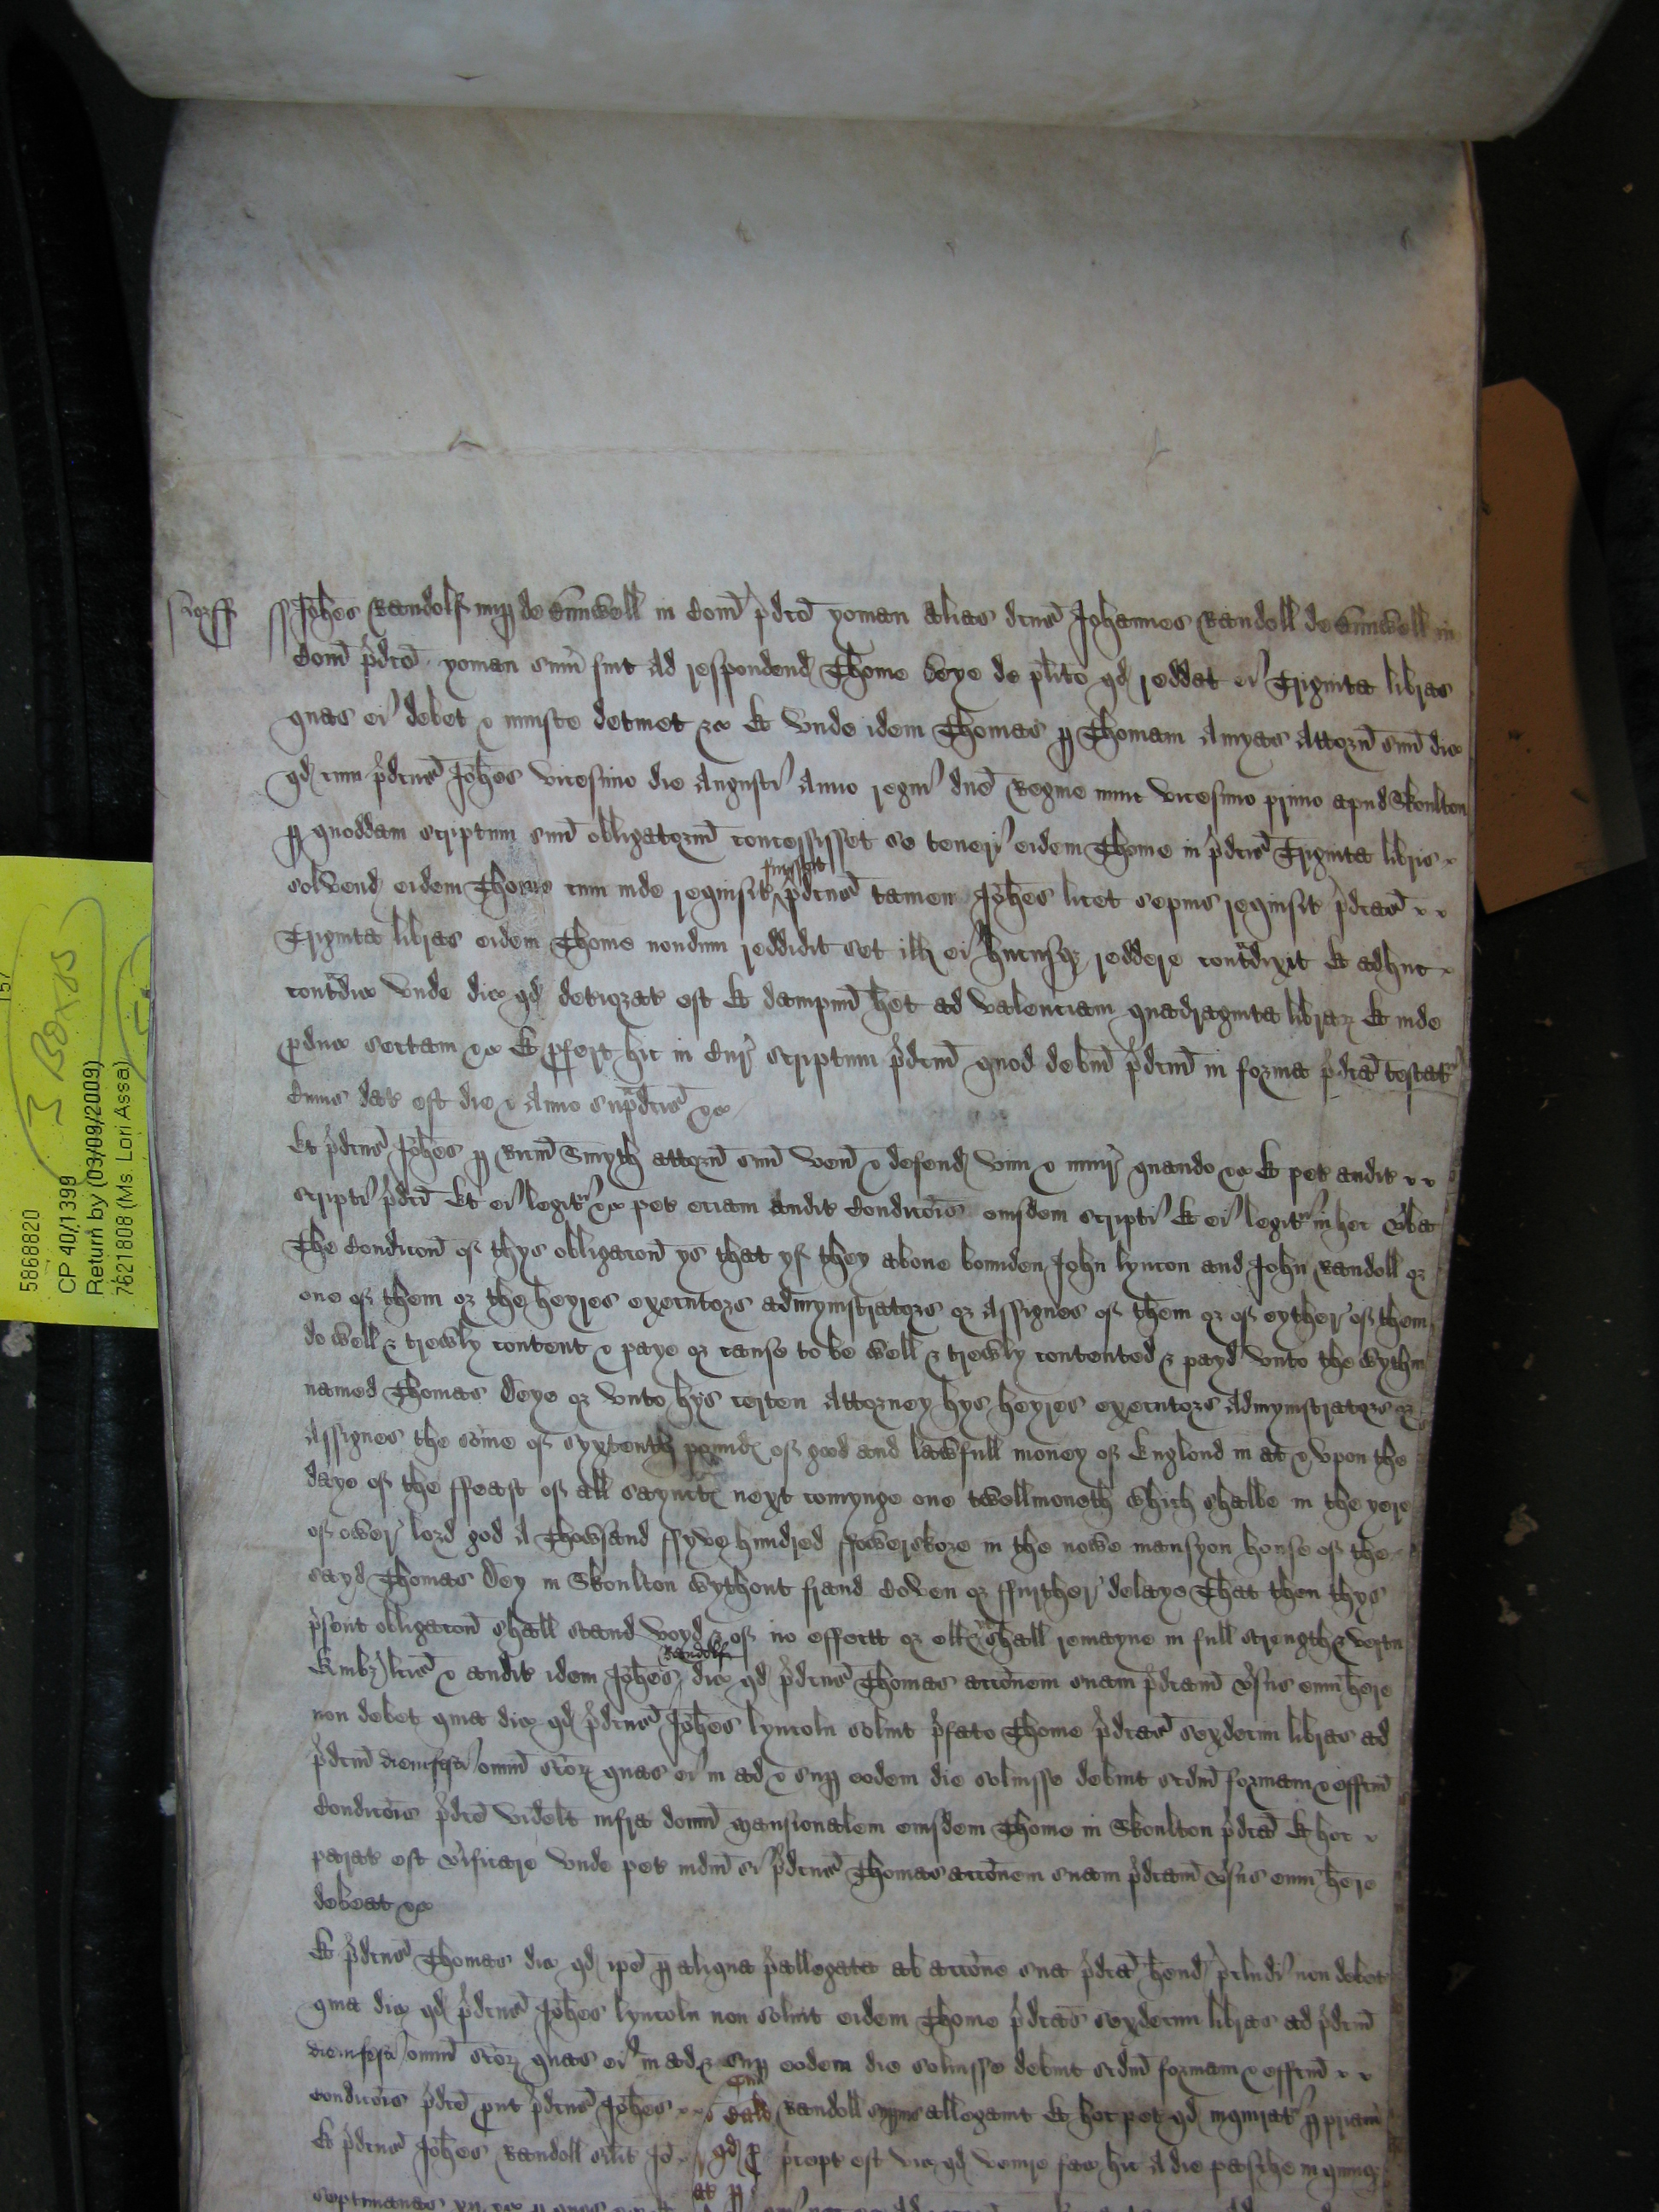 Norff
Joh̃es Randolf nup de in Com̃ p̃dc̃o yoman alias dcũs Johannes Randoll de in
Com̃ p̃dc̃o yoman sum̃ fuit ad respondend Thome Deye de plĩto qd reddat ei Triginta libras
quas ei debet & iniuste detinet &c Et unde idem Thomas p Thomam Amyas Attorñ suũ dic
qd cum p̃dcũs Joh̃es vicesimo die Augusti Anno regni dñe Regine nunc vicesimo primo apud Skoulton
p quoddam scriptum suũ obligatoriũ concessisset se teneri eidem Thome in p̃dcĩs Triginta libris
solvend eidem Thome cum inde requisit fuisset p̃dcũs tamen Joh̃es licet sepius requisit p̃dcãs
Triginta libras eidem Thome nondum reddidit set ill ei hucusq reddere contradixit Et adhuc
contradic unde dic qd deteriorat est Et dampnũ het ad valenciam quadraginta librar Et inde
produc sectam &c Et profert hic in Cur scriptum p̃dcm̃ quod debm̃ p̃dcm̃ in forma p̃dcã testatr
Cuius dat est die & Anno sup̃dcĩs &c
Et p̃dcũs Joh̃es p Ricm̃ Smyth attorñ suũ ven̄ & defend vim & iniur quando &c Et pet audit
scripti p̃dcĩ Et ei legitr &c pet eciam audit Condicõis eiusdem scripti Et ei legitr in hec verba
The Condicoñ of thys obligacoñ ys that yf they above bounden John lyncon and John Randoll or
one of them or the heyres executors admynistrators or Assignes of them or of eyther of them
do well & trewly content & paye or cause to be well & trewly contented & payd unto the wythin
named Thomas Deye or unto hys certen Attorney hys heyres executors Admynistrators or
Assignes the som̃e of syxtenth pounds of good and lawfull money of Englond in at & upon the
daye of the ffeast of all Sayncts next comynge one twellmoneth which shalbe in the yere
of ower lord god A Thowsand ffyve hundred ffowerskore in the nowe mansyon house of the
sayd Thomas Dey in Skoulton wythout fraud Coven or ffurther delaye That then thys
p̃sent obligacoñ shall stand voyd & of no effectt or ells shall remayne in full strength & vertu
Quibz lcĩs & audit idem Joh̃es Randolf dic qd p̃dcũs Thomas accõnem suam p̃dcam̃ versus eum here
non debet quia dic qd p̃dcũs Joh̃es lyncoln solvit p̃fato Thome p̃dcãs sexdecim libras ad
p̃dcm̃ diem festi omm̃ scõr quas ei in ad & sup eodem die solvisse debuit scdm̃ formam & effcm̃
Condicõis p̃dcẽ videlt infra domũ mansionalem eiusdem Thome in Skoulton p̃dcã Et hoc
parat est verificare unde pet iudm̃ si p̃dcũs Thomas accõnem suam p̃dcam̃ versus eum here
debeat &c
Et p̃dcũs Thomas dic qd ip̃e p aliqua p̃allegata ab accõne sua p̃dcã hend p̃cludi non debet
quia dic qd p̃dcũs Joh̃es lyncoln non solvit eidem Thome p̃dcãs sexdecim libras ad p̃dcm̃
diem festi omm̃ scõr quas ei in ad & sup eodem die solvisse debuit scdm̃ formam & effcm̃
condicõis p̃dcẽ prout p̃dcũs Joh̃es Randoll supius allegavit Et hoc pet qd inquiratr p priam
Et p̃dcũs Joh̃es Randoll silit Io p̃cept est vic qd venire fac hic A die pasche in quinq
septimanas xii &c p quos
3 Boxes
5868820
CP 40/1399
Return by (03/09/2009)
7621808 (Ms. Lori Assa)